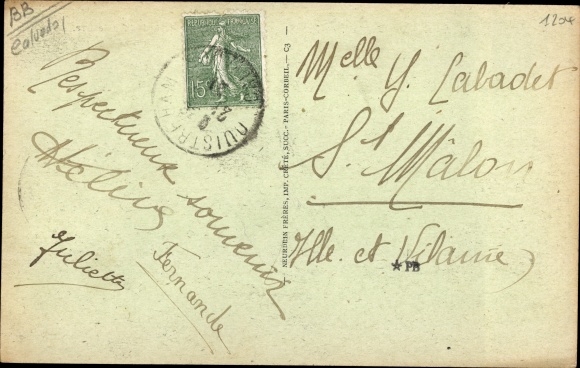 BB
Calvados
120f
REPUBLIQUE FRANÇAISE
15c
OUISTREHAM
Respectueux souvenir
Hélène
Juliette
Fernande
NEURDEIN FRÈRES, IMP. CRÉTÉ, SUCC.- PARIS-CORBEIL. — C3
Melle Y. Labadet
St Mâlon
Ille et Vilaine
★ PB